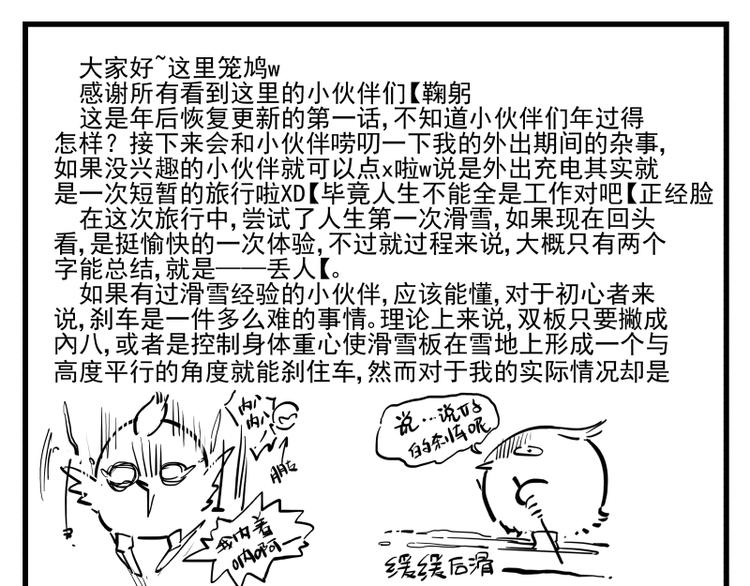 大家好~这里笼鸠w
感谢所有看到这里的小伙伴们【鞠躬
这是年后恢复更新的第一话,不知道小伙伴们年过得
怎样？接下来会和小伙伴唠叨一下我的外出期间的杂事,
如果没兴趣的小伙伴就可以点x啦w说是外出充电其实就
是一次短暂的旅行啦XD【毕竟人生不能全是工作对吧【正经脸
在这次旅行中,尝试了人生第一次滑雪,如果现在回头
看,是挺愉快的一次体验,不过就过程来说,大概只有两个
字能总结,就是——丢人【。
如果有过滑雪经验的小伙伴,应该能懂,对于初心者来
说,刹车是一件多么难的事情。理论上来说,双板只要撇成
內八,或者是控制身体重心使滑雪板在雪地上形成一个与
高度平行的角度就能刹住车,然而对于我的实际情况却是
内八
内八
朋友
我内着
呐啊——
说…说好
的刹车呢
缓缓后滑